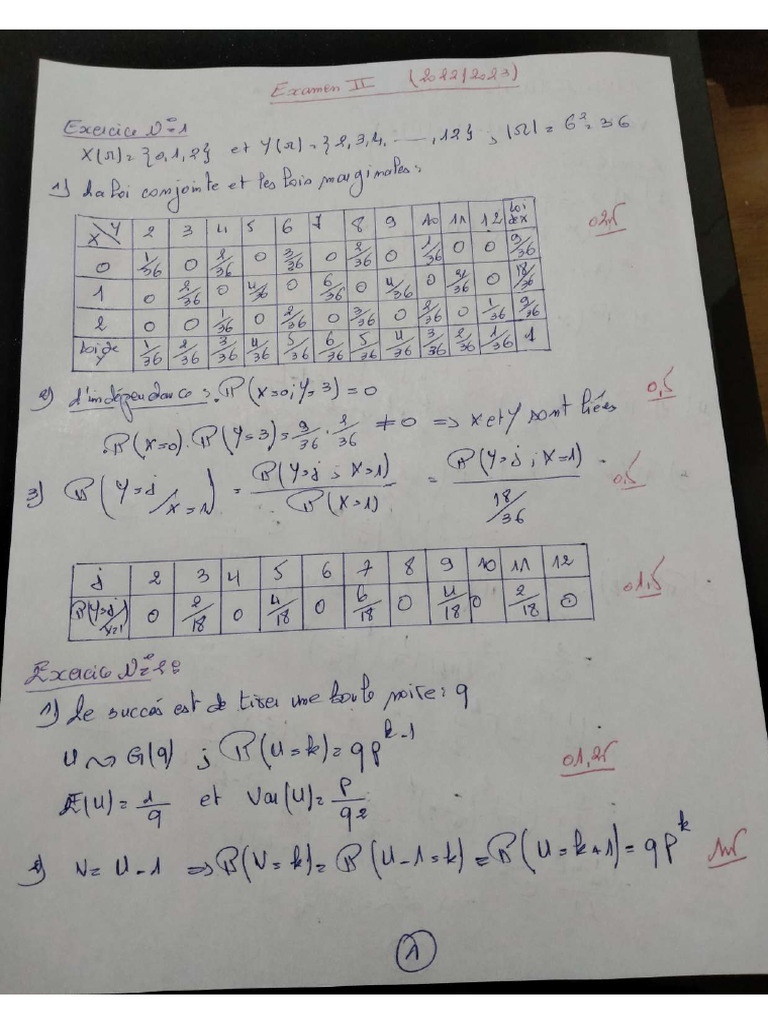 Examen II (2022/2023)
Exercice N°=1
X(Ω)={0,1,2} et Y(Ω)={2,3,4,-----,12} ; |Ω|=6²=36
1) La loi conjointe et les lois marginales:
X\Y 2 3 4 5 6 7 8 9 10 11 12 Loi de X
0 1/36 0 2/36 0 3/36 0 2/36 0 1/36 0 0 9/36
1 0 2/36 0 4/36 0 6/36 0 4/36 0 2/36 0 18/36
2 0 0 1/36 0 2/36 0 3/36 0 2/36 0 1/36 9/36
Loi de Y 1/36 2/36 3/36 4/36 5/36 6/36 5/36 4/36 3/36 2/36 1/36 1
2) L'indépendance: P(X=0;Y=3)=0
0,5
P(X=0).P(Y=3)=9/36 . 2/36 ≠0 => X et Y sont liées
3) P(Y=j/X=1) = P(Y=j ; X=1)/P(X=1) = P(Y=j ; X=1)/(18/36)
0,5
j 2 3 4 5 6 7 8 9 10 11 12
P(Y=j/X=1) 0 2/18 0 4/18 0 6/18 0 4/18 0 2/18 0
01,5
Exercice N°=2:
1) Le succés est de tirer une boule noire: q
U ~> G(q) ; P(U=k)=qp^{k-1}
01,25
E(U)=1/q et Var(U)=p/q²
2) V= U-1 => P(V=k)= P(U-1=k)= P(U=k+1)= qp^k
1